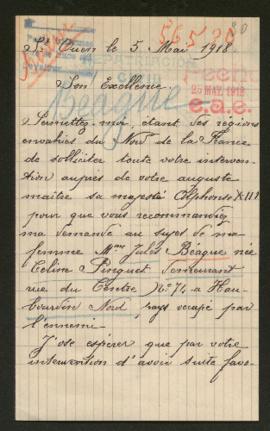 56520
St Ouen le 5 Mai 1918.
REPATRIACION
Son Excellence
Béague
25 MAY. 1918
e.a.e.
Permettez-moi, étant des régions
envahies du Nord de la France
de solliciter toute votre interven-
tion auprès de votre auguste
maître sa majesté Alphonse XIII
pour que vous recommandiez
ma demande au sujet de ma
femme Mme Jules Béague née
Celina Pinquet demeurant
rue du Centre No 74 à Hau-
bourdin Nord, pays occupé par
l'ennemi.
J'ose espérer que par votre
intervention d'avoir suite favo-